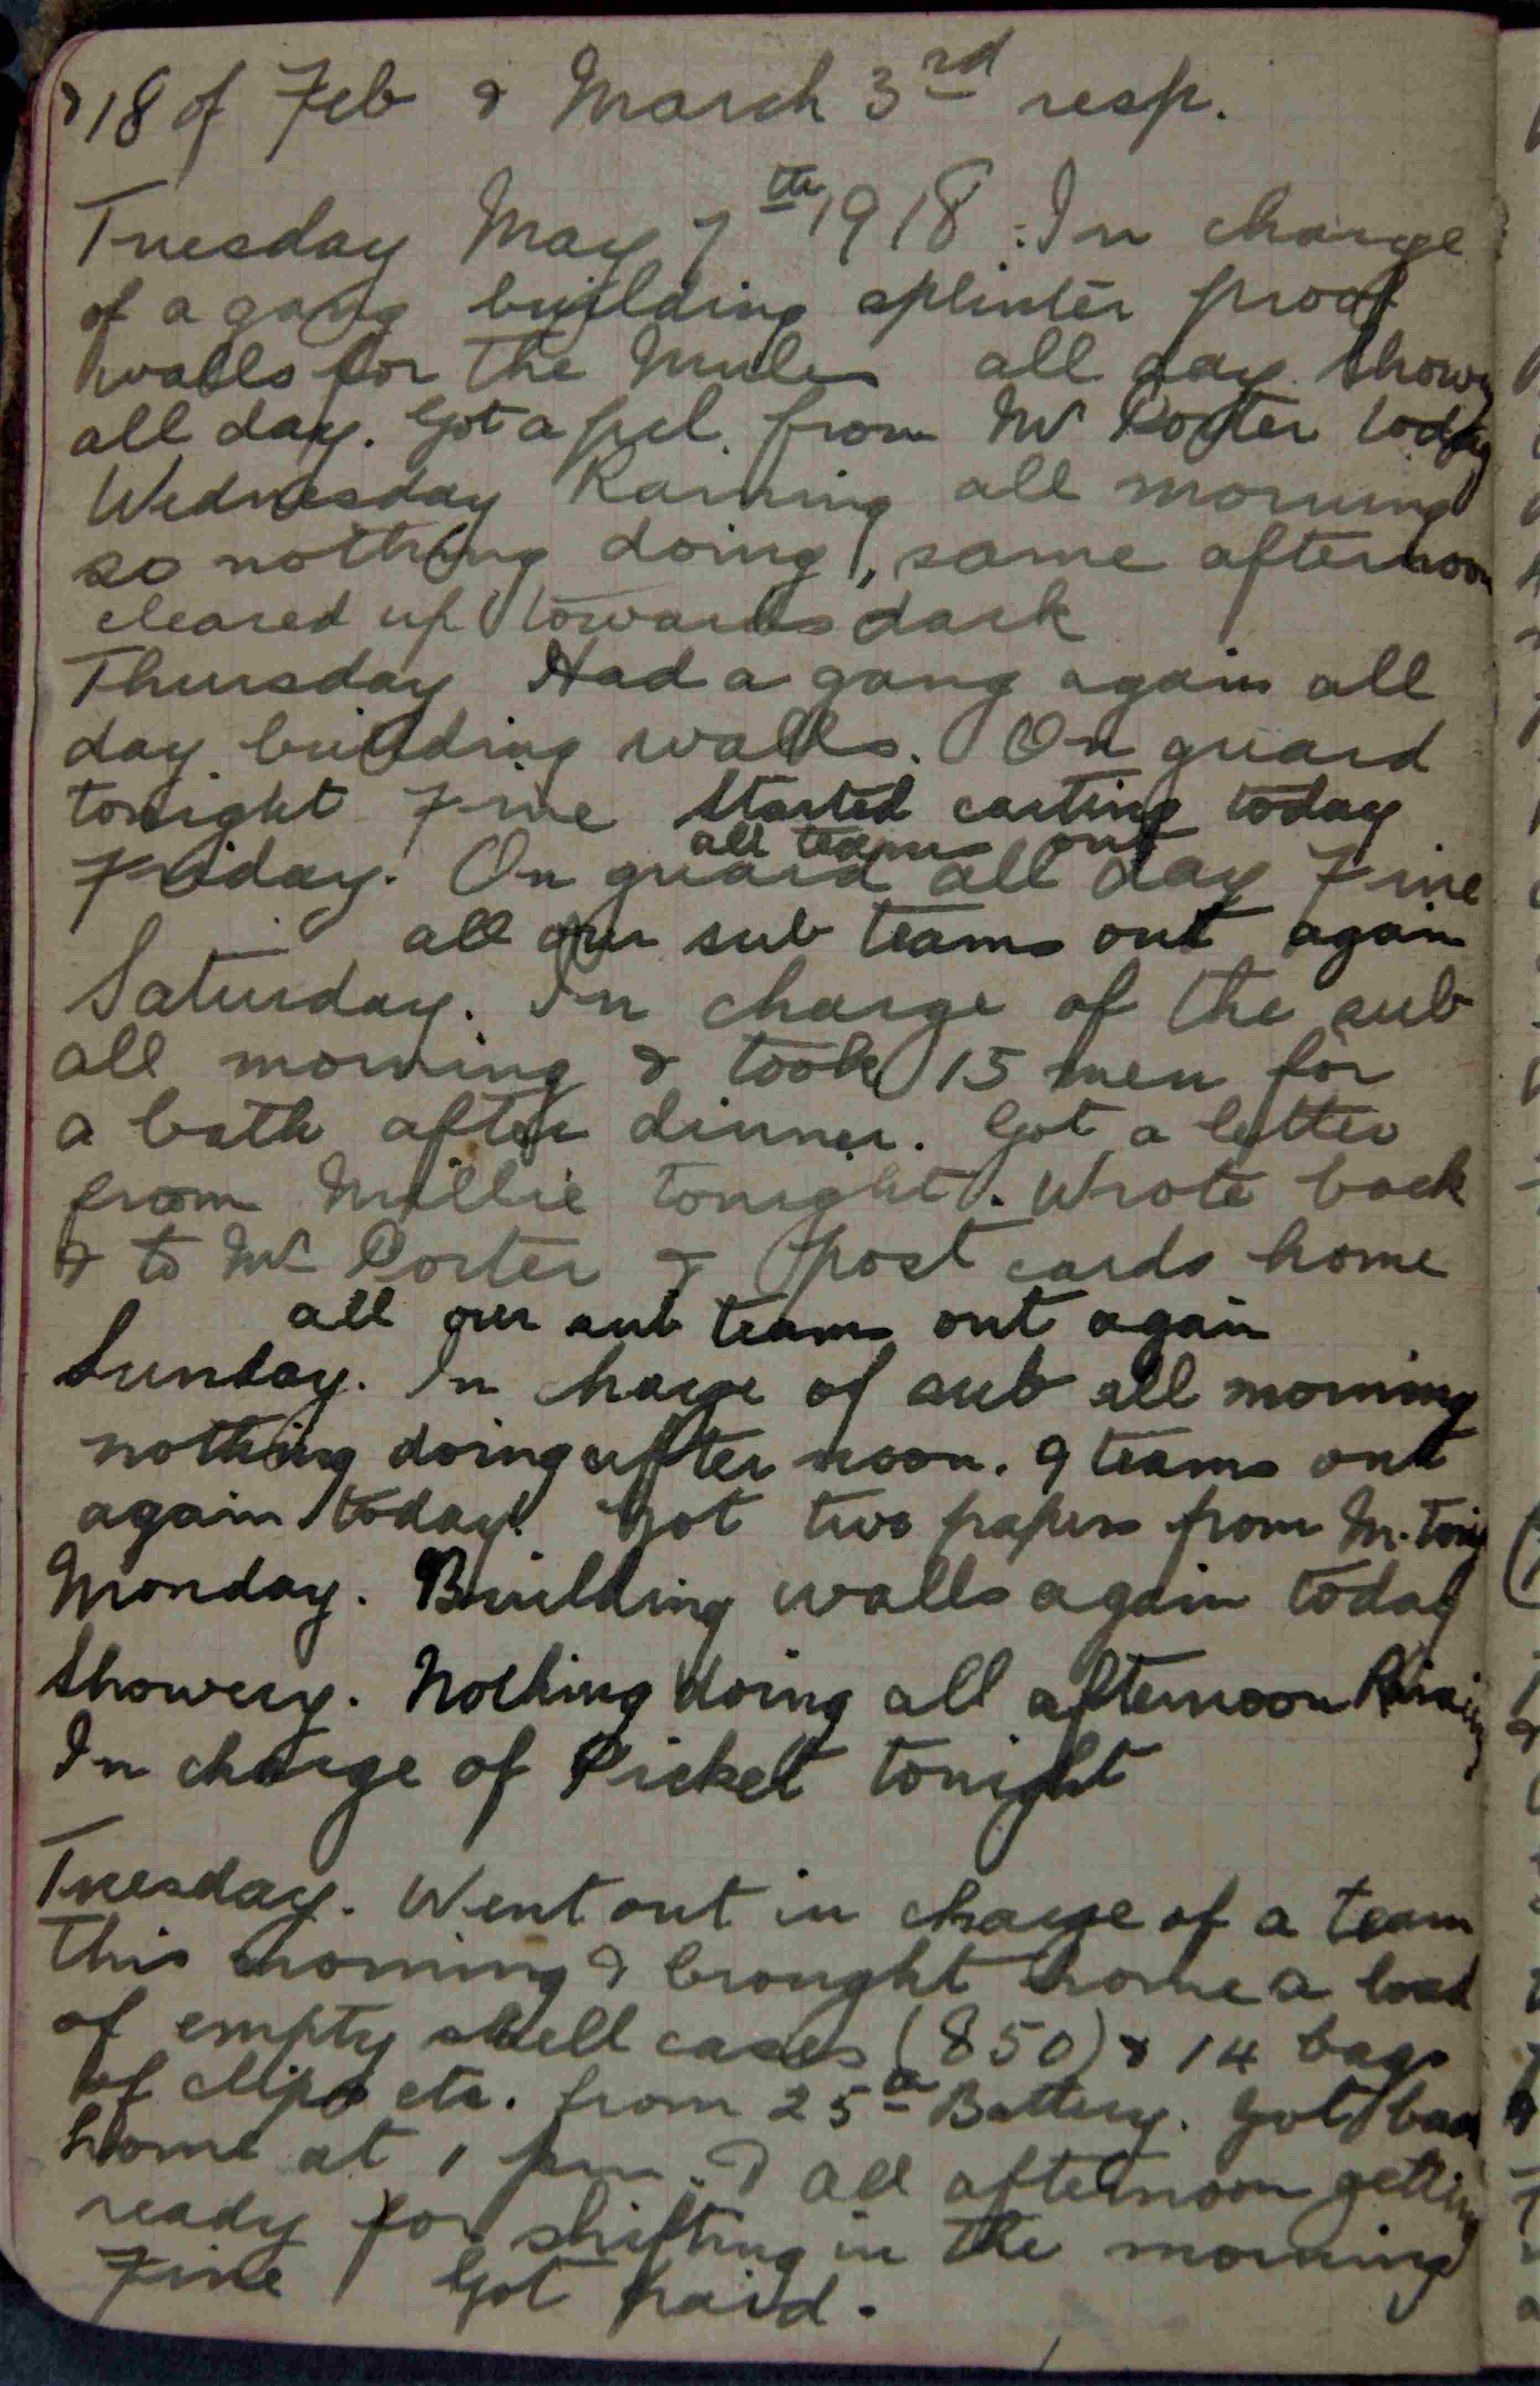 & 18 of Feb & March 3rd resp.
Tuesday May 7th 1918. In charge
of a gang building splinter proof
walls for the Mules all day. Showy
all day. Got a pcl. from Mr Porter today
Wednesday Raining all morning
so nothing doing, same afternoon
cleared up towards dark
Thursday Had a gang again all
day building walls. On guard
tonight Fine Started carting today
all teams out
Friday. On guard all day Fine
all our sub teams out again
Saturday. In charge of the sub
all morning & took 15 men for
a bath after dinner. Got a letter
from Millie tonight. Wrote back
& to Mr Porter & post cards home
all our sub teams out again
Sunday. In charge of sub all morning
nothing doing after noon. 9 teams out
again today. Got two papers from M.
Monday. Building walls again today
Showery. Nothing doing all afternoon Raining
In charge of Picket tonight
Tuesday. Went out in charge of a team
this morning & brought home a load
of empty shell cases (850) & 14 bags
of clips etc. from 25th Battery. Got
home at 1 pm. & all afternoon getting
ready for shifting in the morning
Fine Got paid.